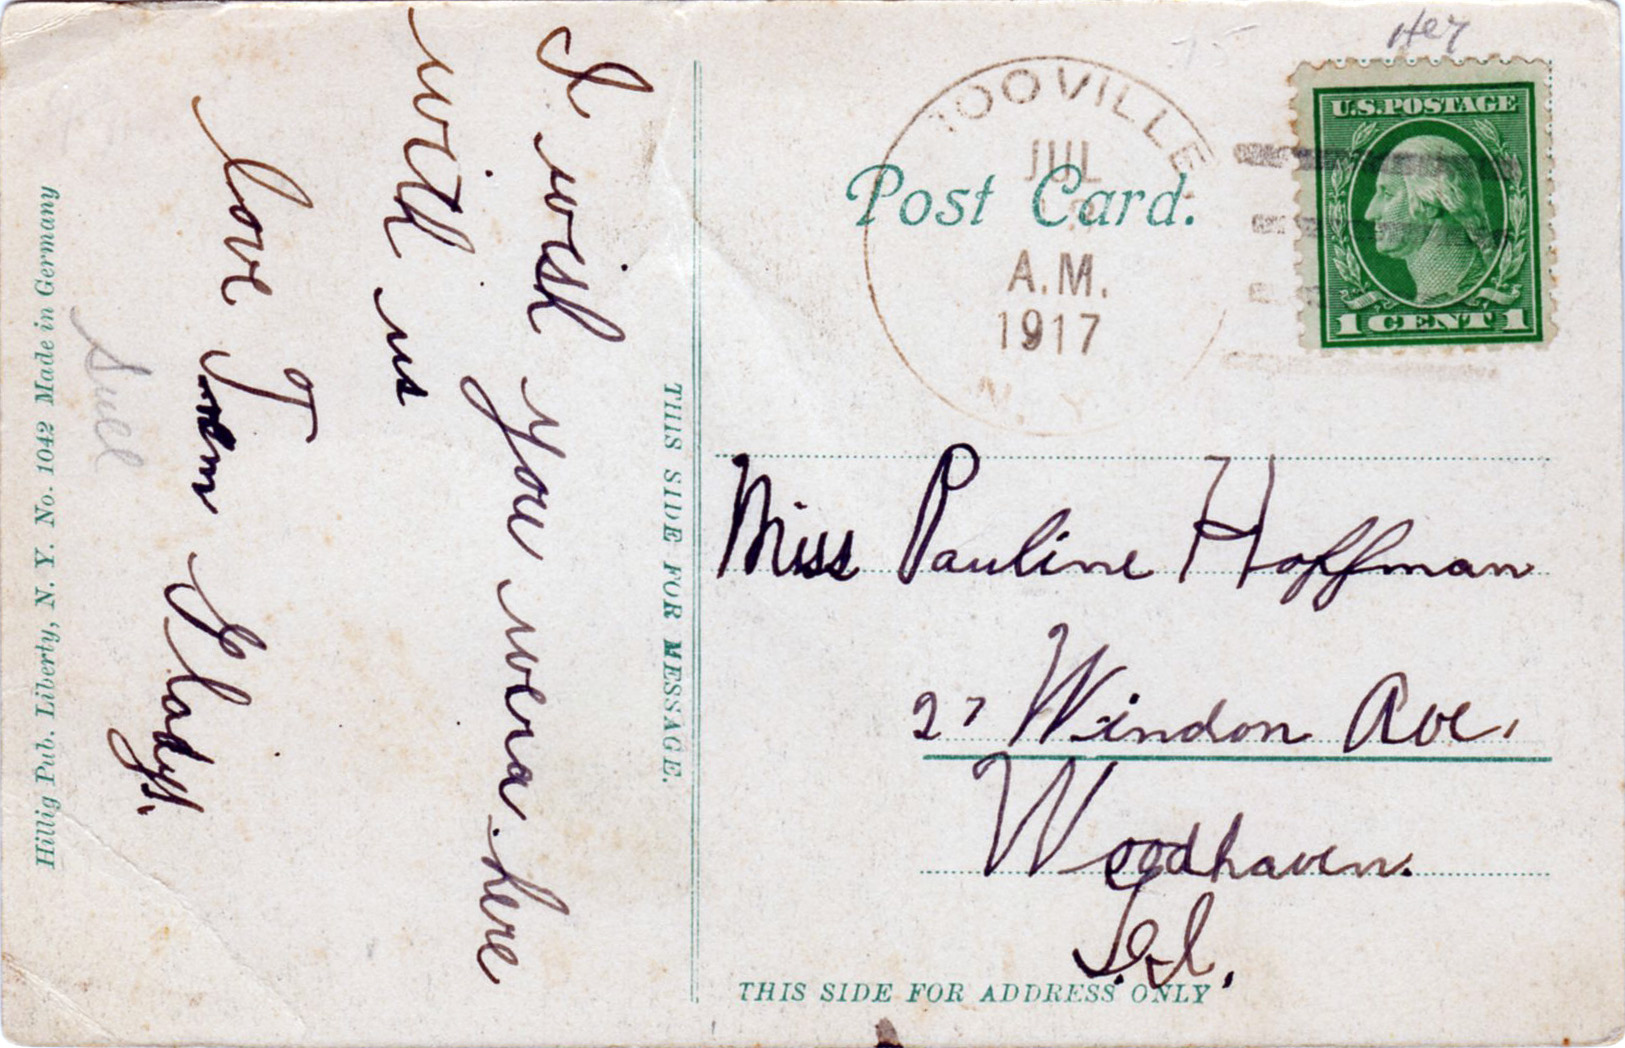 Hillig Pub. Liberty, N. Y. No. 1042 Made in Germany
I wish you wera here
with us
love From Gladys.
THIS SIDE FOR MESSAGE.
OOVILLE
JUL
A.M.
1917
N. Y.
Post Card.
U.S.POSTAGE
1 CENT 1
Miss Pauline Hoffman
27 Windon Ave.
Woodhaven.
L.I.
THIS SIDE FOR ADDRESS ONLY